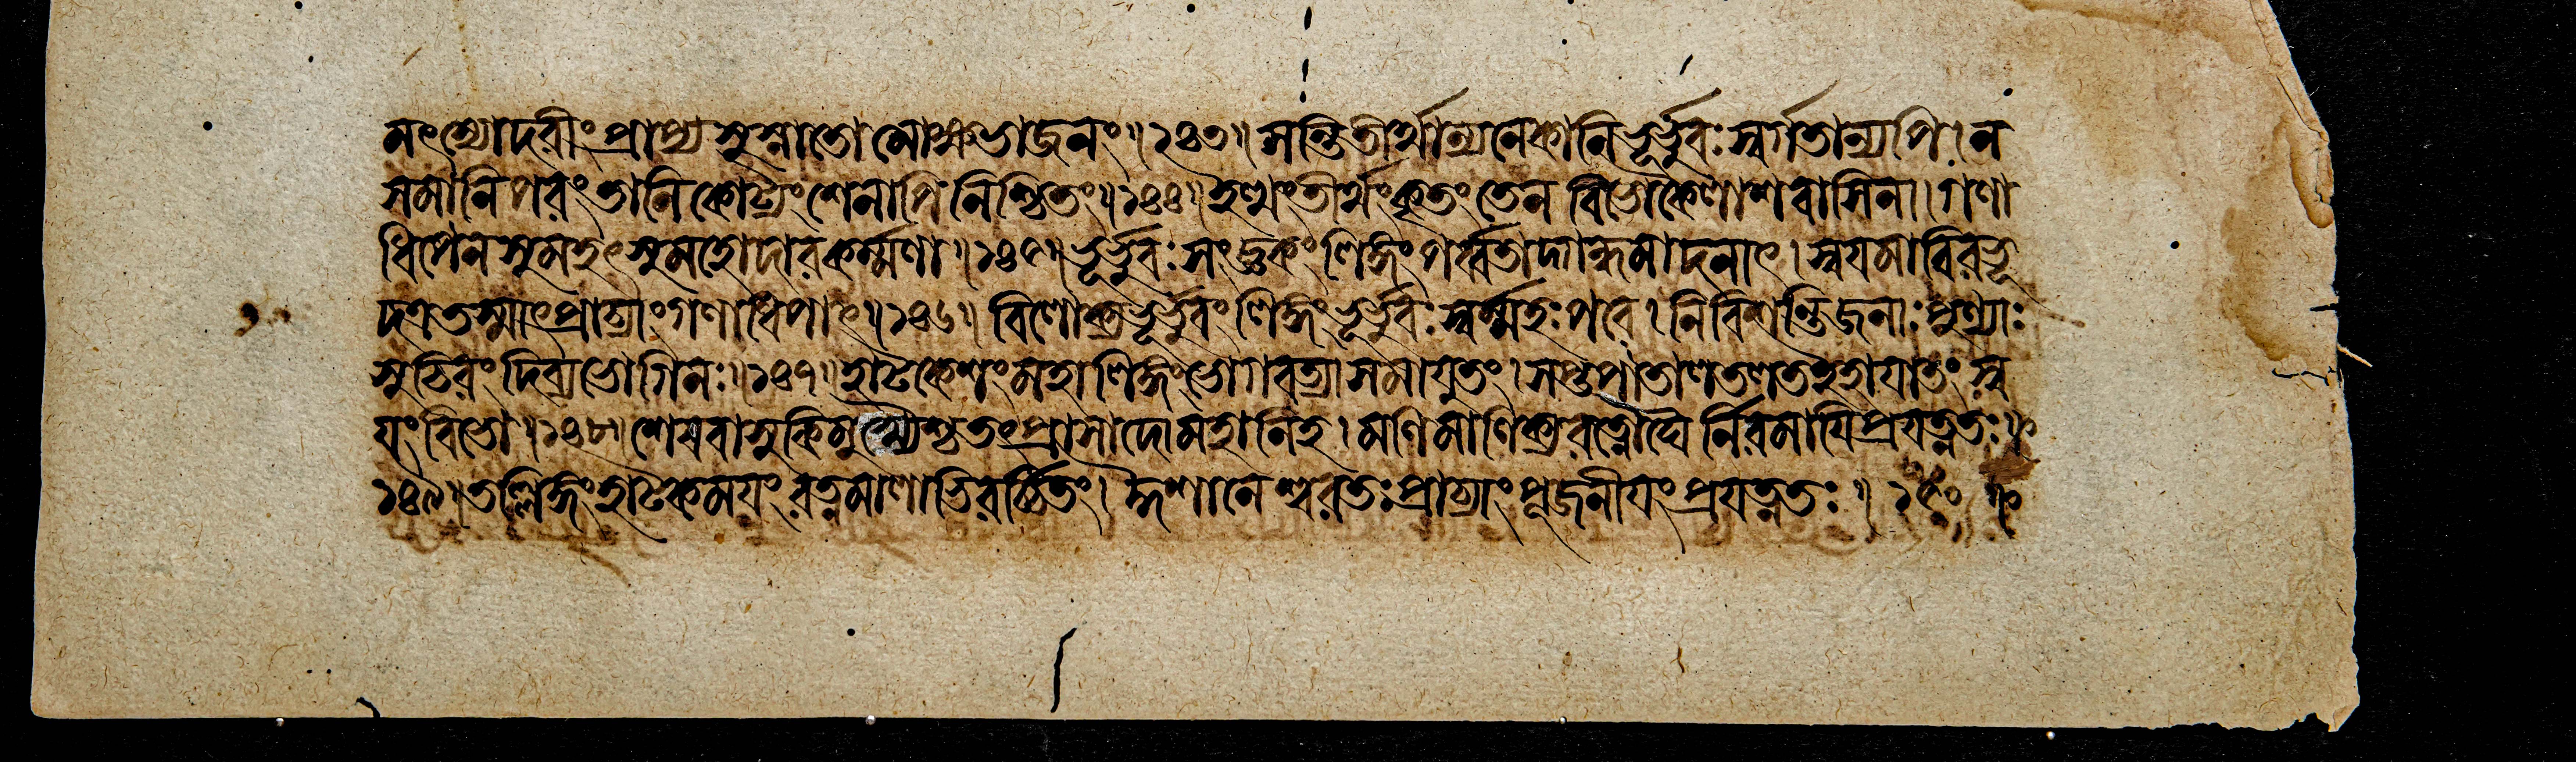 মৎস্যোদরীং প্রাপ্য সুস্নাতো মোক্ষভাজনং॥১৪৩॥ সন্তি তীর্থান্যনেকানি ভূর্ভুবঃস্বর্গতান্যপি।ন
সমানি পরং তানি কোট্যংশেনাপি নিশ্চিতং॥১৪৪॥ইত্থং তীর্থং কৃতং তেন বিভো কৈলাশবাসিনা।গণা
ধিপেন সুমহৎসুমহোদারকর্ম্মণা॥১৪৫॥ভূর্ভুবঃসংজ্ঞকং লিঙ্গং পর্ব্বতাদ্গন্ধমাদনাৎ।স্বযমাবিরভূ
দত্র তস্মাৎপ্রাচ্যাং গণাধিপাৎ॥১৪৬॥ বিলোক্য ভূর্ভুবং লিঙ্গং ভূর্ভুবঃস্বর্ম্মহঃপরে।নিবিশন্তি জনাঃ পুণ্যাঃ
সুচিরং দিব্যভোগিনঃ॥১৪৭॥হাটকেশং মহালিঙ্গং ভোগবত্যা সমাযুতং।সপ্তপাতালতলত ইহাযাতং স্ব
যং বিভো॥১৪৮॥শেষবাসুকিমুখ্যৈশ্চ তং প্রাসাদো মহানিহ।মণিমাণিক্যরত্নৌঘৈর্নিরমাযি প্রযত্নতঃ॥
১৪৯॥তল্লিঙ্গং হাটকময়ং রত্নমালাভিরর্চ্চিতং।ঈশানেশ্বরতঃ প্রাচ্যাং পূজনীযং প্রযত্নতঃ॥১৫০॥